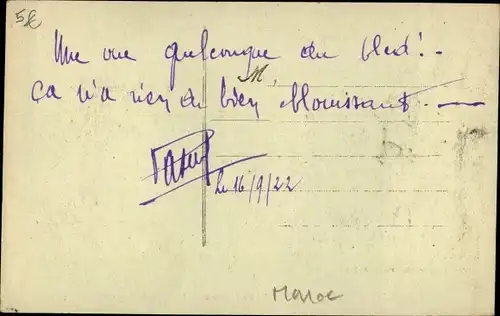 5€
Une vue quelconque du bled! -
M.
Ça n'a rien de bien éblouissant. —
Le 16/9/22
Maroc